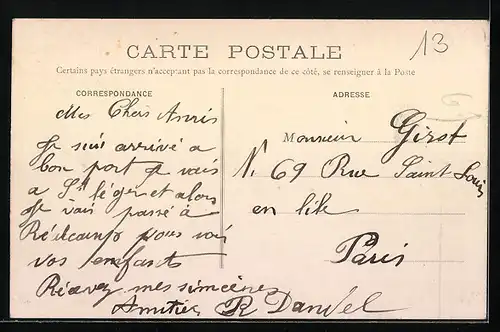 13
CARTE POSTALE
Certains pays étrangers n'acceptant pas la correspondance de ce côté, se renseigner à la Poste
CORRESPONDANCE
Mes Chers Amis
Je suis arrivé a
bon port je vais
a St léger et alors
Je vais passé à
pour voir
vos enfants
Recevez mes sincères
Amitiés R Dandel
ADRESSE
Monsieur Girot
N. 69 Rue Saint Louis
en lile
Paris